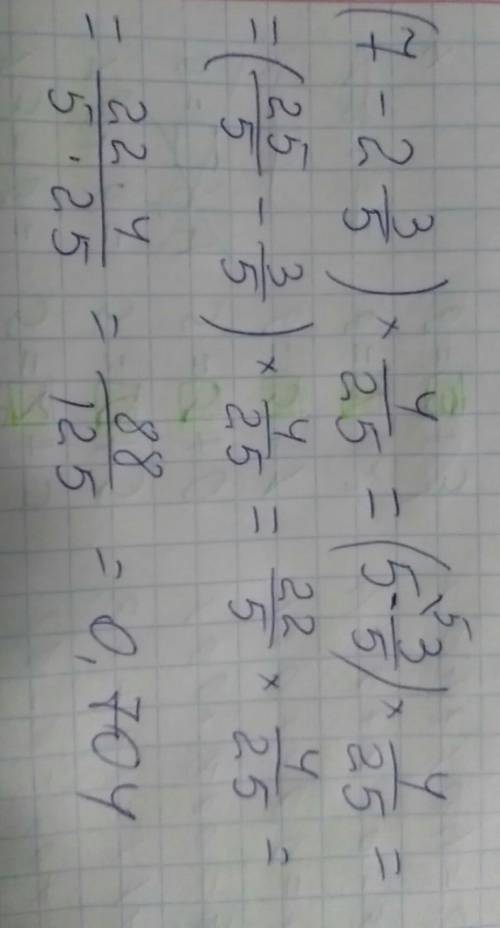 (7 - 2 3/5) × 4/25 = (5 - 3/5)⁵ × 4/25 =
= (25/5 - 3/5) × 4/25 = 22/5 × 4/25 =
= 22 · 4 / 5 · 25 = 88/125 = 0,704